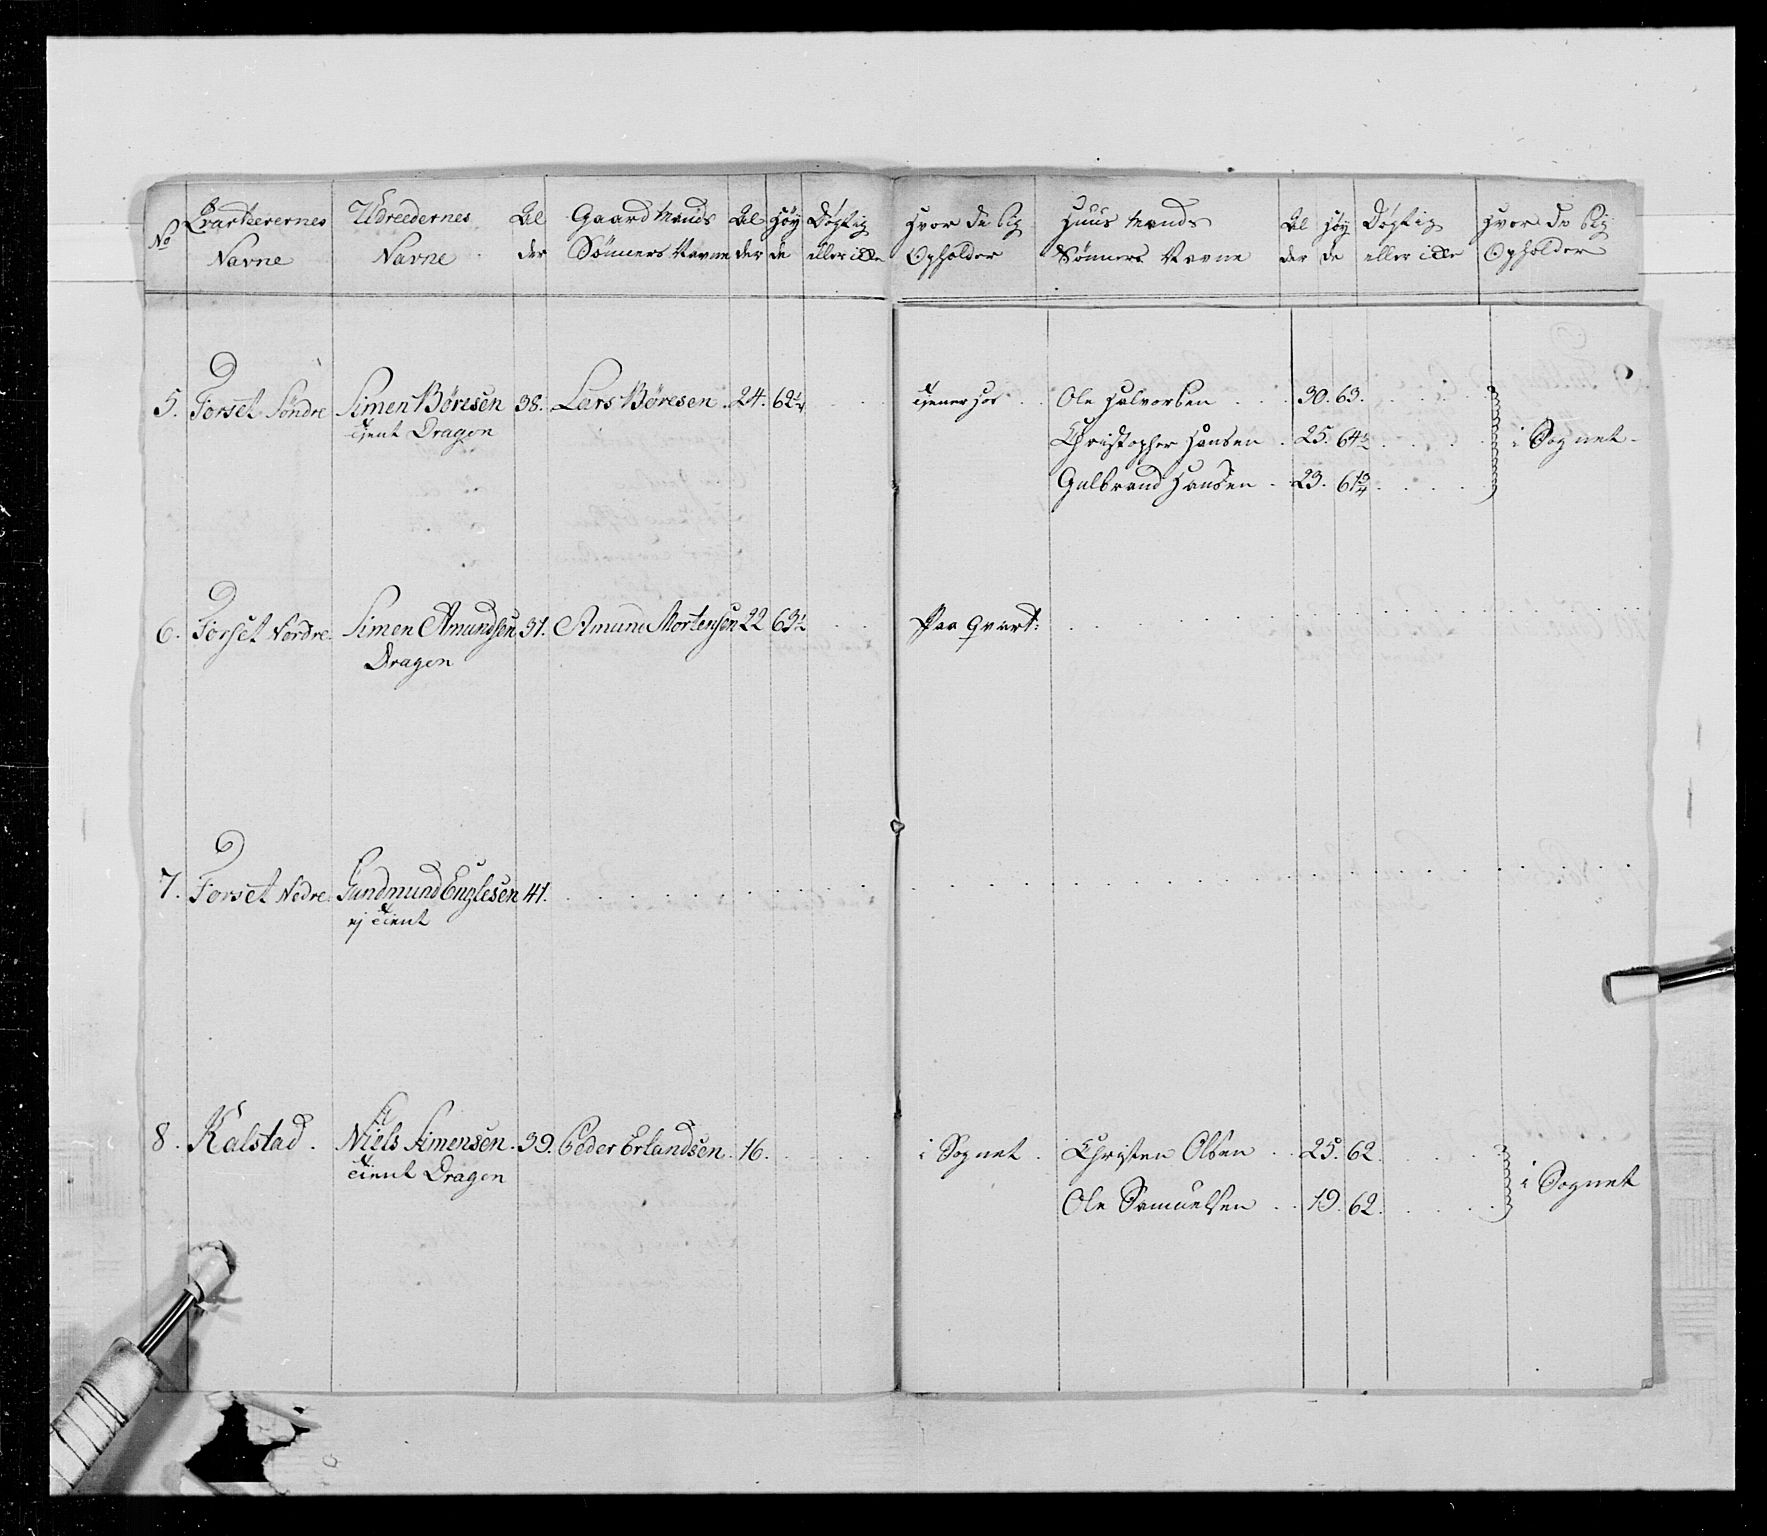 No Qvarteerernes Navne Udreedernes Navne Al der Gaard Mands Sønners Navne Al der Høy de Døgtig eller icke Hvor de sig Opholder Huus Mands Sønners Navne Al der Høy de Døgtig eller icke Hvor de sig Opholder
5. Forset Søndre Simen Børesen 38. Lars Børesen. 24. 62½ tiener hos Ole Halvorsen 30. 63.
tient Dragon Christopher Hansen 25. 64½ i Sognet
Gulbrand Hansen 23. 61¾
6. Forset Nordre Simen Amundsen 31. Amund Mortensen 22 63½ Paa Qvart:
Dragon
7. Forset Nedre Gundmund Englesen 41.
ej tient
8. Kalstad. Niels Simensen. 39. Peder Erlandsen. 16. i Sognet Christen Olsen 25. 62.
tient Dragon i Sognet
Ole Samuelsen 19. 62.